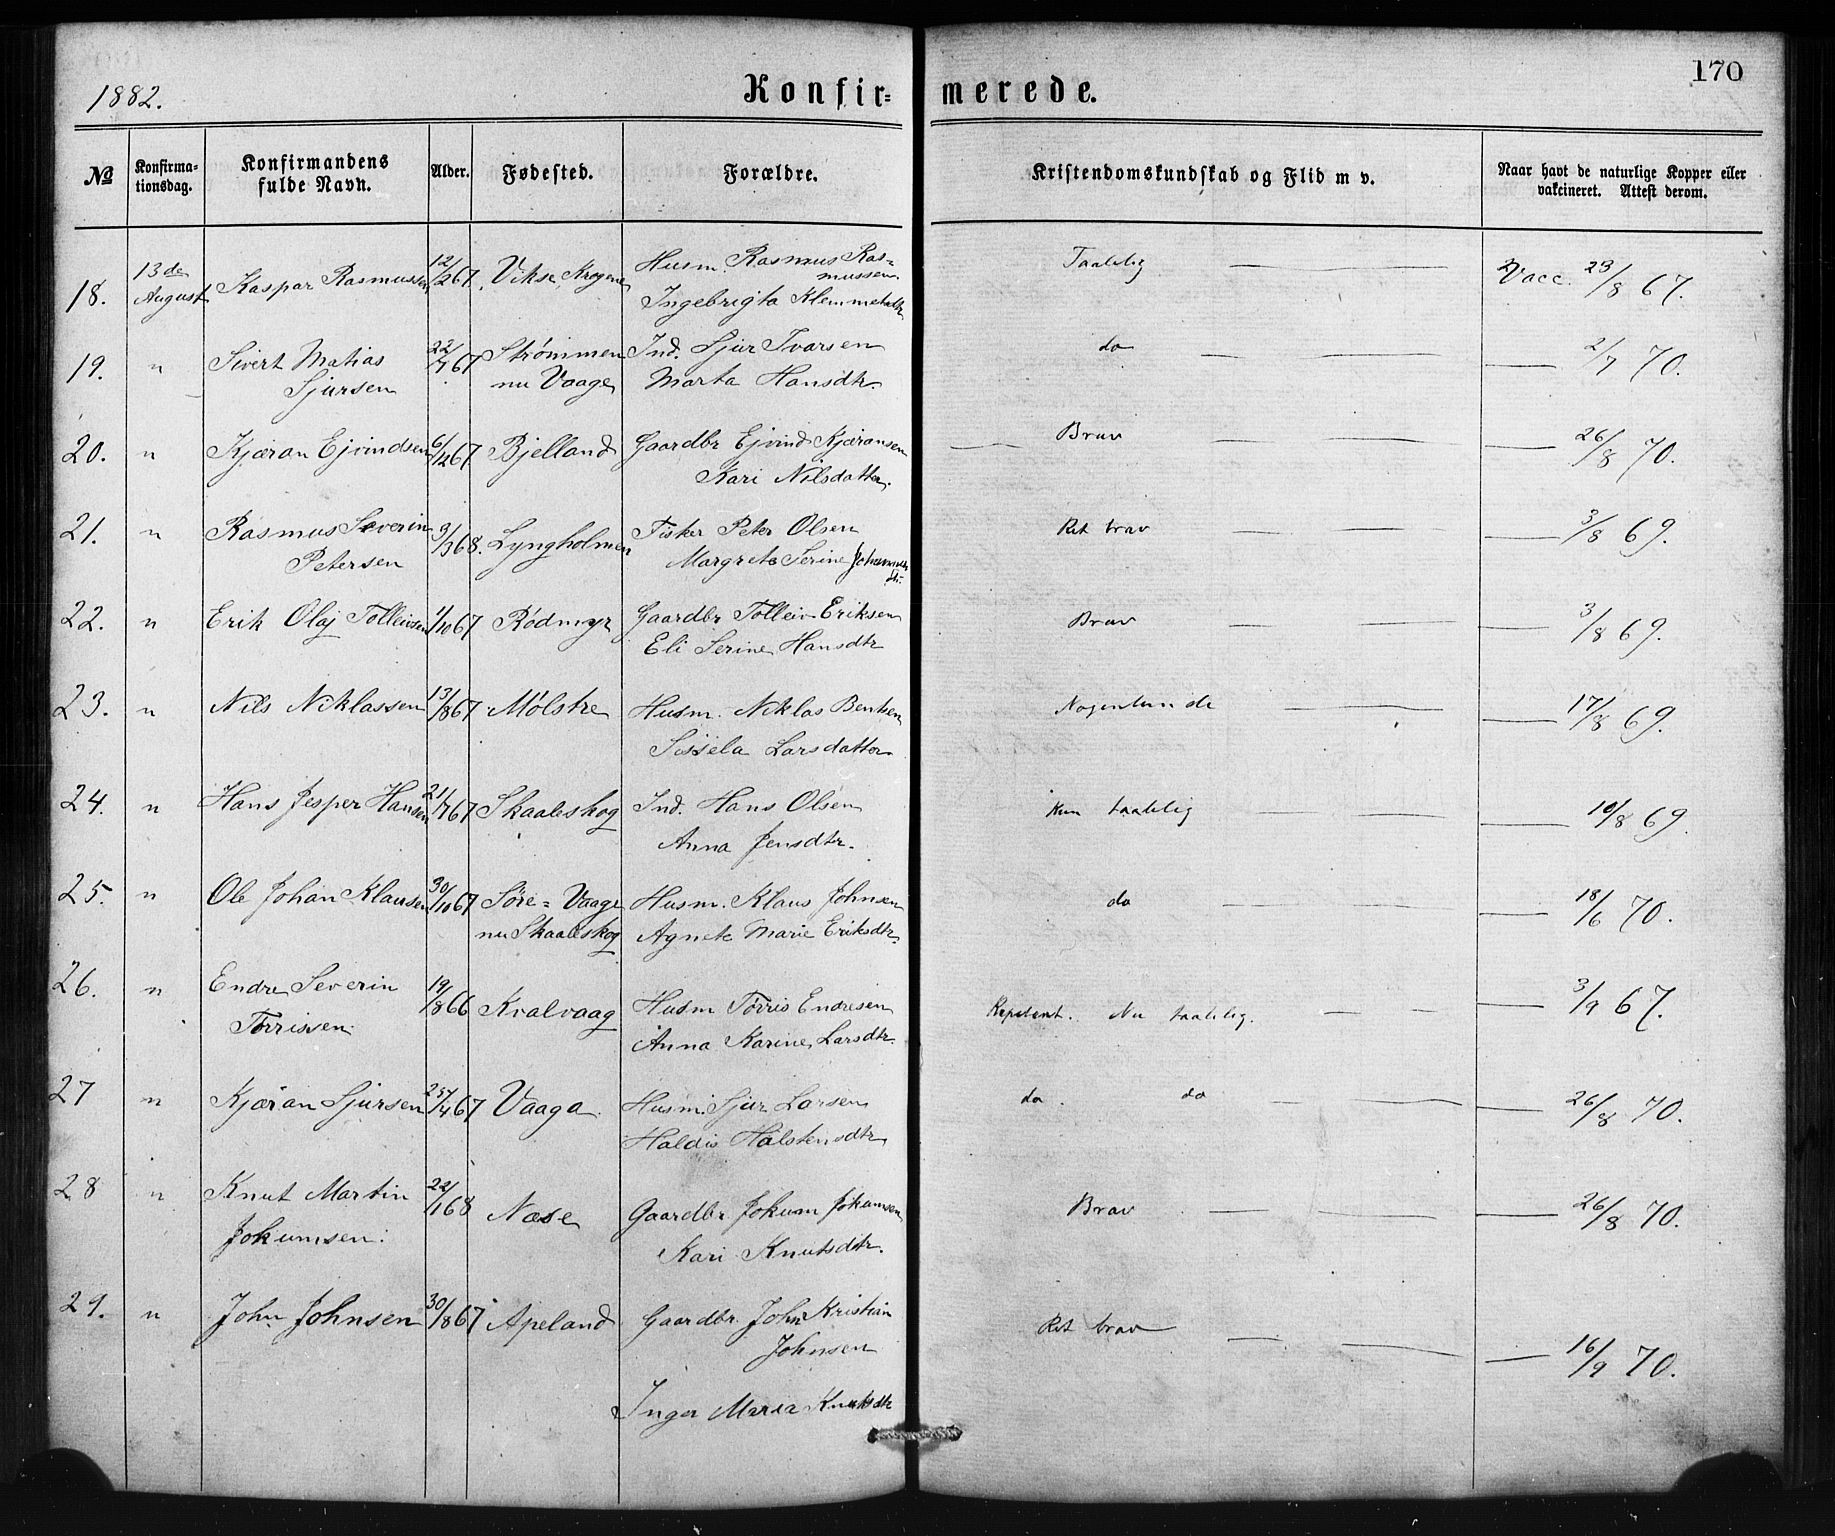 170
1882. Konfirmerede.
№ Konfirmationsdag. Konfirmandens fulde Navn. Alder. Fødested. Forældre. Kristendomskundskab og Flid m v. Naar havt de naturlige Kopper eller vakcineret. Attest derom.
18. 13de August Kaspar Rasmussen 12/2 67 Vikse Husm. Rasmus Rasmussen Taalelig — — Vacc. 23/8 67.
Ingebrigta Klemmetsdtr
19. " Sivert Matias 22/7 67 Strømmen Ind. Sjur Ivarsen do — — — 2/7 70.
Sjursen nu Vaage Marta Hansdtr.
20. " Kjæran Ejvindsen 6/12 67 Bjelland Gaardbr Ejvind Kjæransen — Brav — — — 26/8 70.
Kari Nilsdatter.
21. " Rasmus Severin 3/3 68. Lyngholmen Fisker Peter Olsen Ret brav — — — 3/8 69.
Petersen Margrete Serine
22. " Erik Olaj Tolleivsen 1/10 67 Rødmyr Gaardbr Tolleiv Eriksen Brav — — — 3/8 69.
Eli Serine Hansdtr
23. " Nils Niklassen 13/8 67 Mølstre Husm. Niklas Bentsen Nogenlunde — — — 17/8 69.
Sissela Larsdatter
24. " Hans Jesper Hansen 21/7 67 Skaaleskog Ind. Hans Olsen Kun taalelig — — — 10/8 69.
Anna Jensdtr.
25. " Ole Johan Klausen 30/10 67 Søre=Vaage Husm. Klaus Johnsen do — — — 18/6 70.
nu Skaaleskog Agnete Marie Eriksdtr.
26. " Endre Severin 19/8 66 Kvalvaag Husm Tørris Endresen Repetent. Nu taalelig. — — — 3/9 67.
Tørrissen. Anna Karine Larsdtr.
27 " Kjæran Sjursen 4 67 Vaaga. Husm. Sjur Larsen do. do — — — 26/8 70.
Haldis Halstensdtr
28 " Knut Martin 22/1 68 Næse Gaardbr Jokum Jokumsen Brav — — — 26/8 70.
Jokumsen. Kari Knutsdtr.
29. " John Johnsen 30/8 67 Apeland Gaardbr. John Kristian Ret brav — — — 16/9 70.
Johnsen
Inger Maria Knutsdtr